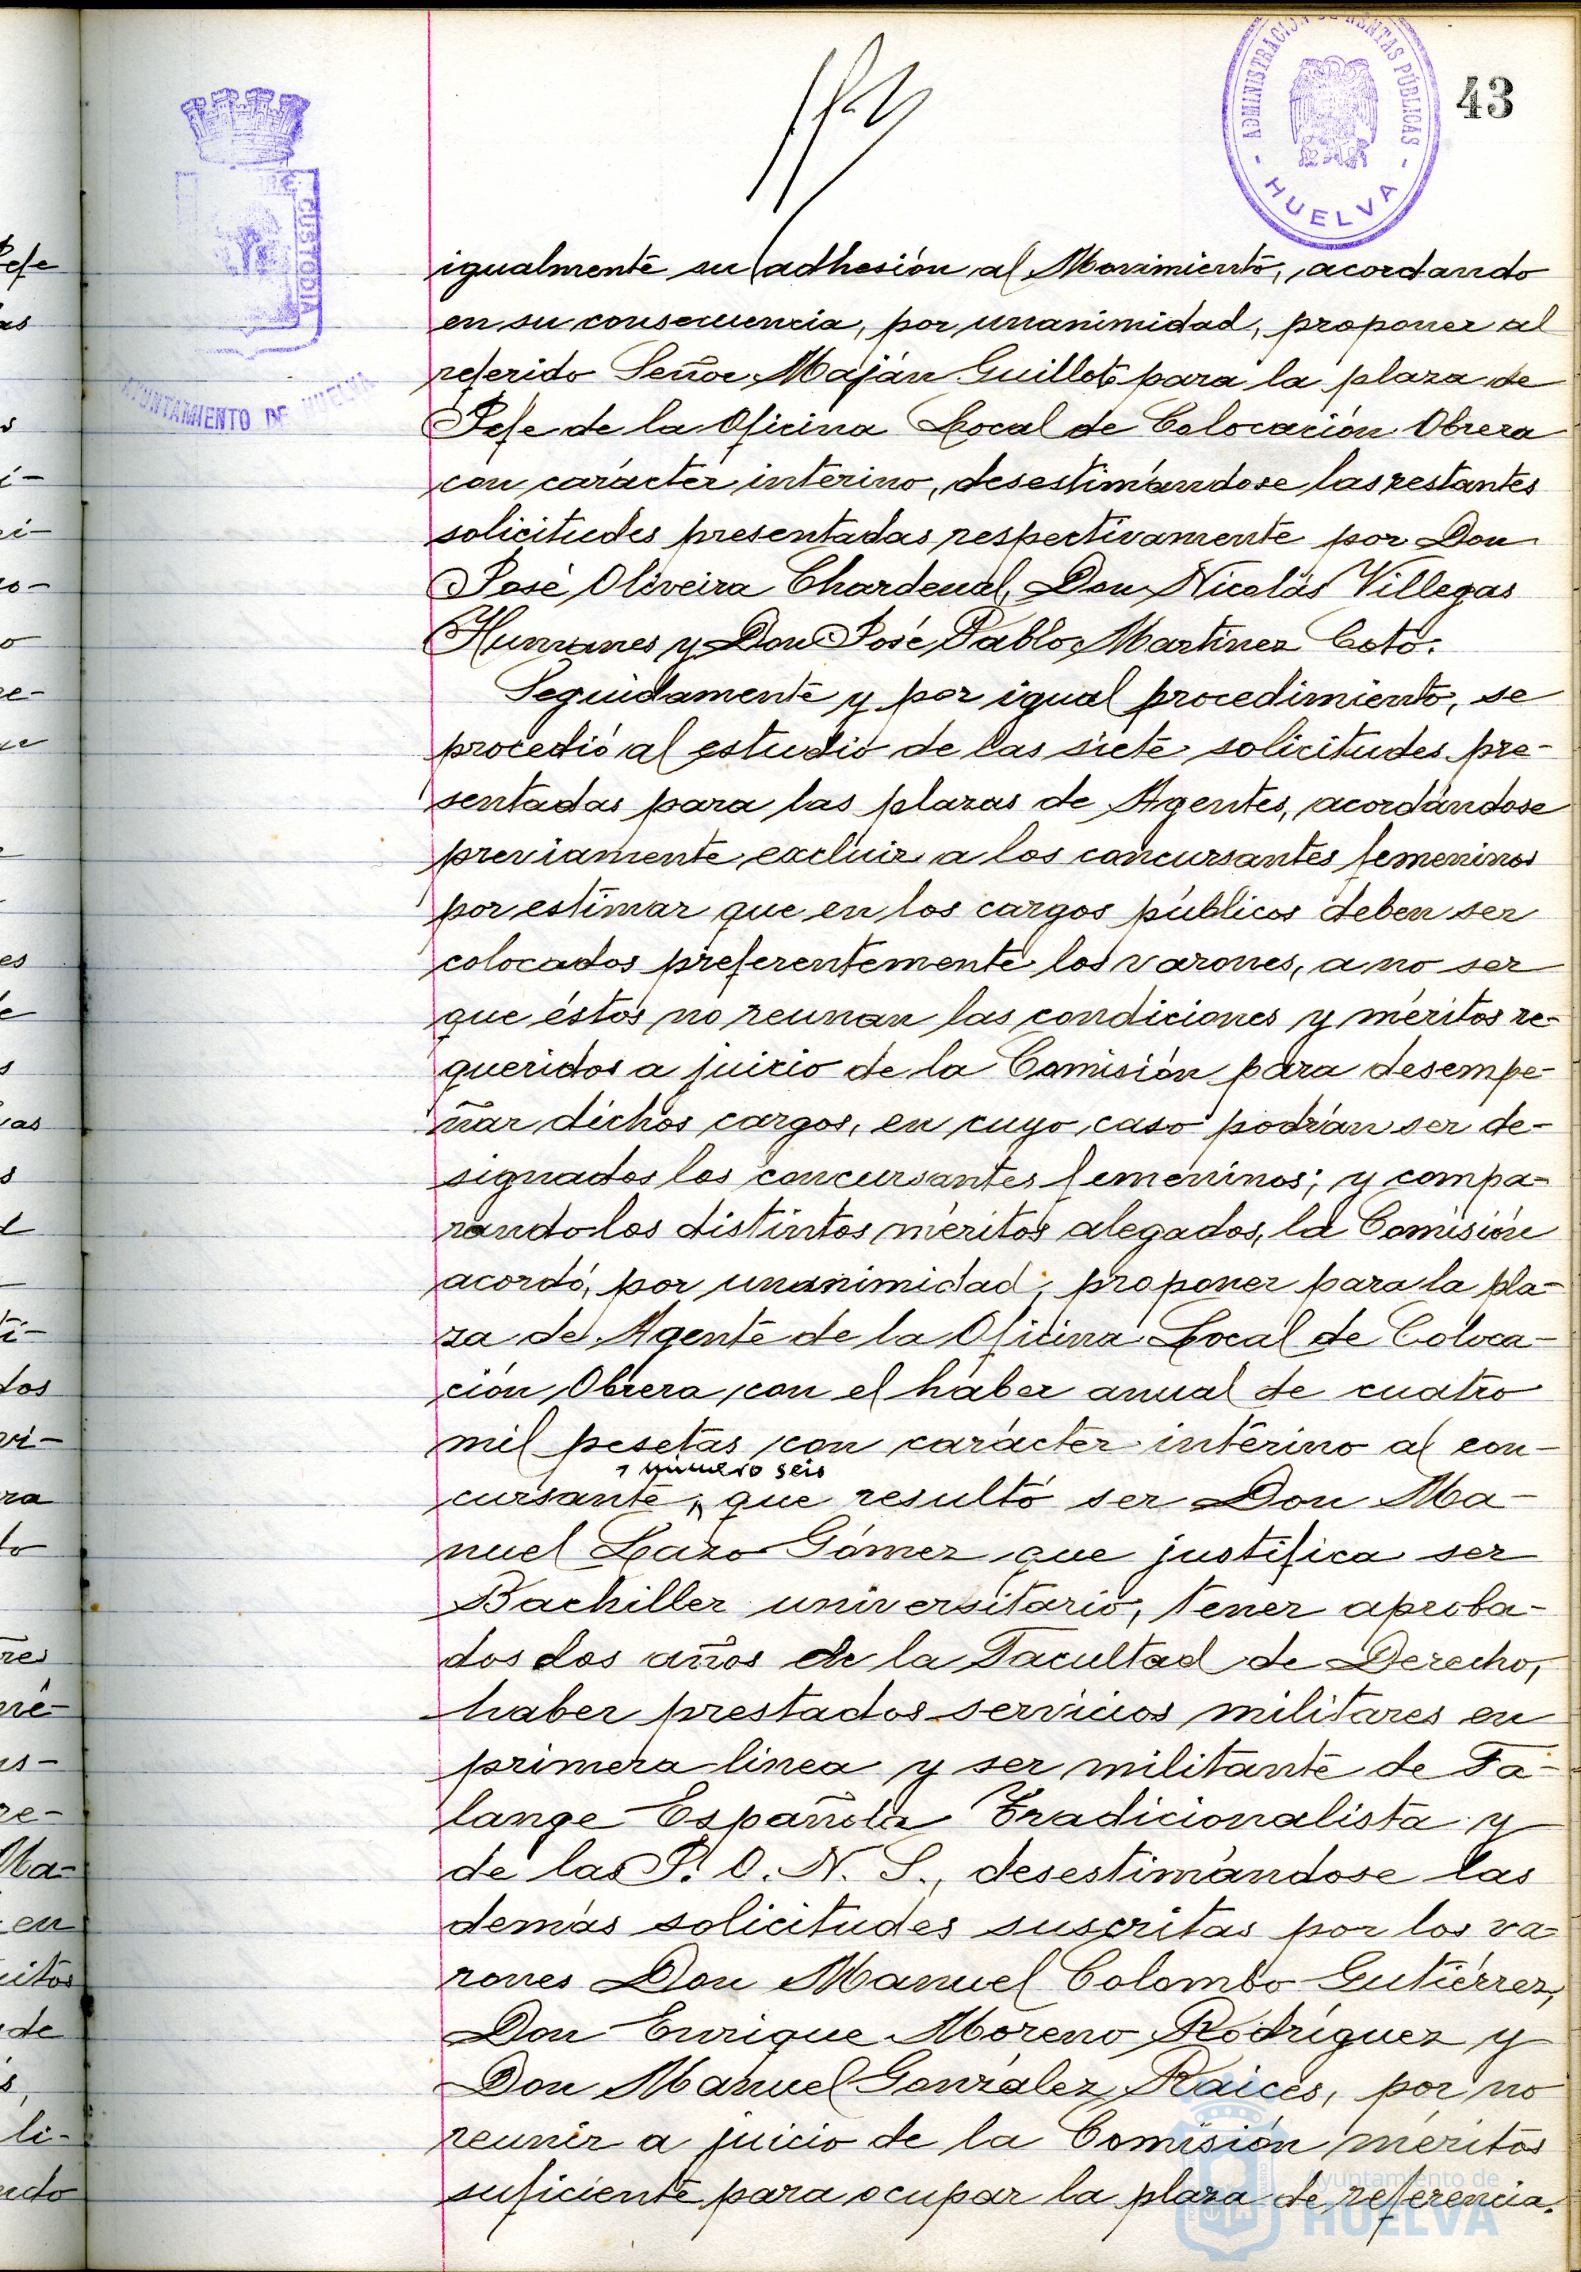 43
ADMINISTRACIÓN DE RENTAS PÚBLICAS
- HUELVA -
CUSTODIA
AYUNTAMIENTO DE HUELVA
igualmente su adhesión al Movimiento, acordando
en su consecuencia, por unanimidad, proponer al
referido Señor Maján Guillot para la plaza de
Jefe de la Oficina Local de Colocación Obrera
con carácter interino, desestimándose las restantes
solicitudes presentadas respectivamente por Don
José Oliveira Chardenal, Don Nicolás Villegas
Humanes y Don José Pablo Martínez Coto.
Seguidamente y por igual procedimiento, se
procedió al estudio de las siete solicitudes pre-
sentadas para las plazas de Agentes, acordándose
previamente excluir a los concursantes femeninos
por estimar que en los cargos públicos deben ser
colocados preferentemente los varones, a no ser
que éstos no reunan las condiciones y méritos re-
queridos a juicio de la Comisión para desempe-
ñar dichos cargos, en cuyo caso podrán ser de-
signados los concursantes femeninos; y compa-
rando los distintos méritos alegados, la Comisión
acordó, por unanimidad, proponer para la pla-
za de Agente de la Oficina Local de Coloca-
ción Obrera con el haber anual de cuatro
mil pesetas con carácter interino al con-
número seis
cursante, que resultó ser Don Ma-
nuel Lazo Gómez que justifica ser
Bachiller universitario, tener aproba-
dos dos años de la Facultad de Derecho,
haber prestados servicios militares en
primera linea y ser militante de Fa-
lange Española Tradicionalista y
de las J. O. N. S., desestimándose las
demás solicitudes suscritas por los va-
rones Don Manuel Colombo Gutiérrez,
Don Enrique Moreno Rodríguez y
Don Manuel González Raices, por no
reunir a juicio de la Comisión méritos
suficiente para ocupar la plaza de referencia.
Ayuntamiento de
HUELVA